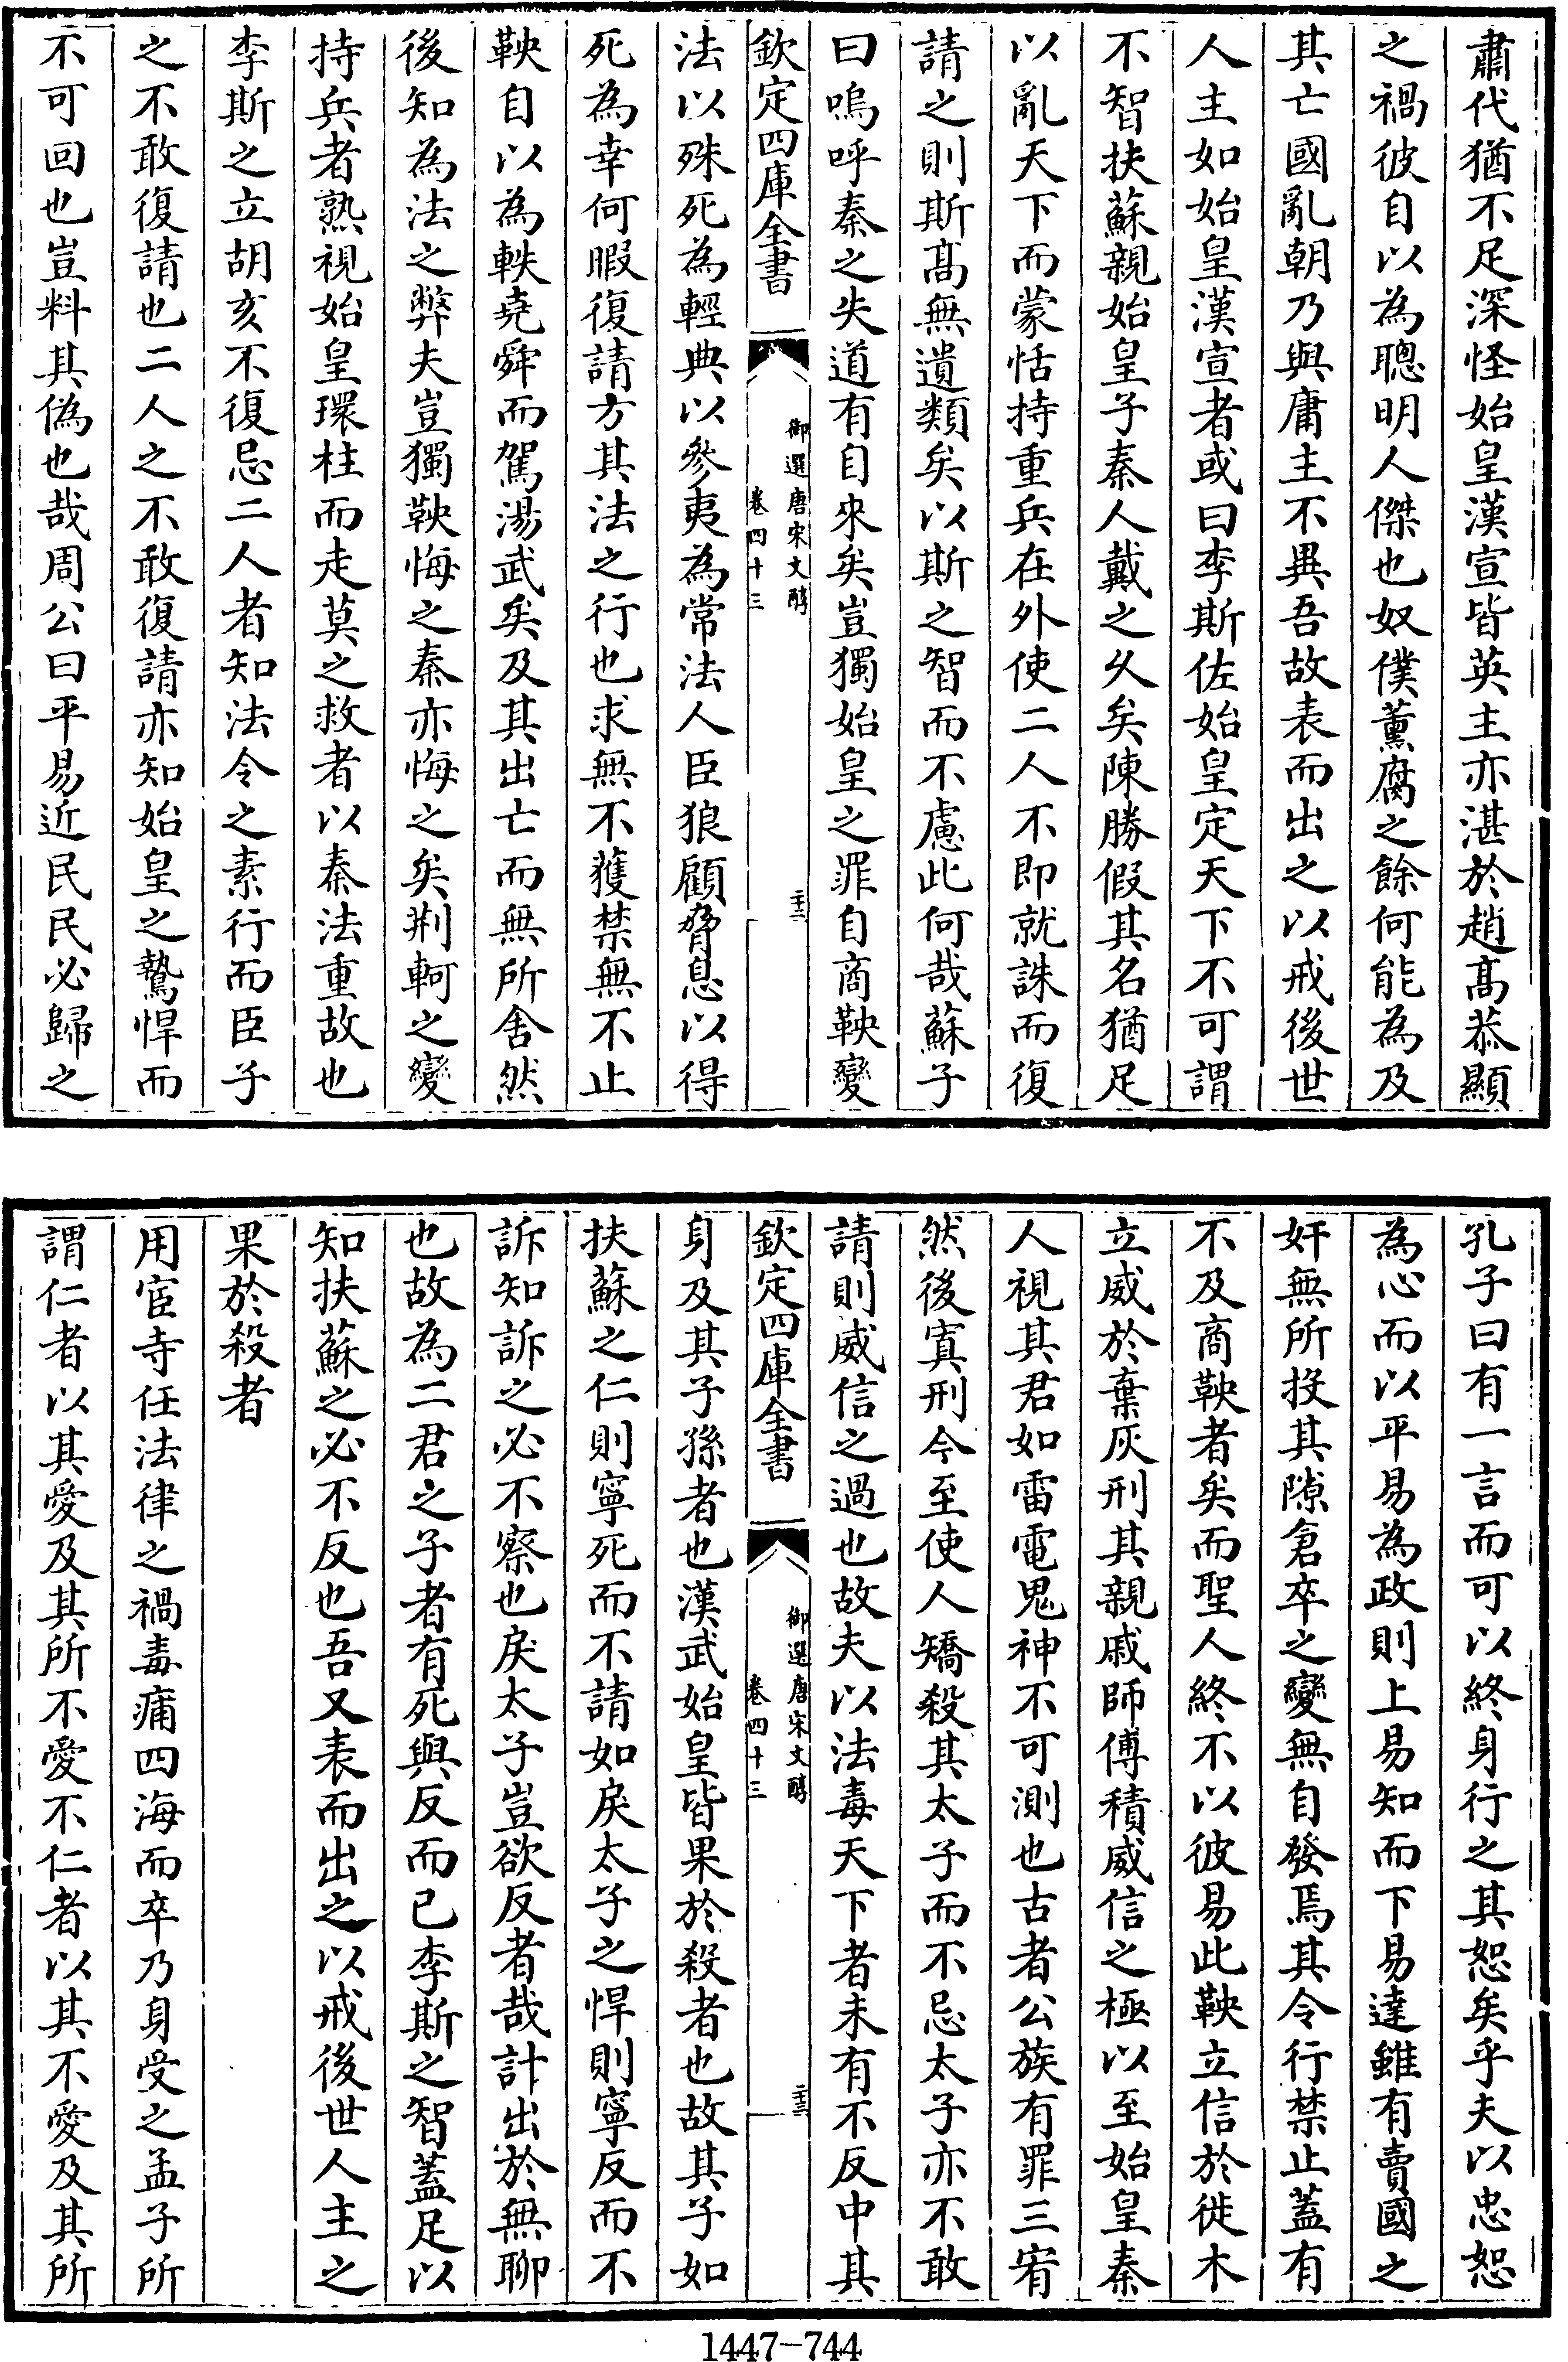 肅代猶不足深怪始皇漢宣皆英主亦湛於趙髙恭顯
之禍彼自以為聰明人傑也奴僕薰腐之餘何能為及
其亡國亂朝乃與庸主不異吾故表而出之以戒後世
人主如始皇漢宣者或曰李斯佐始皇定天下不可謂
不智扶蘇親始皇子秦人戴之乆矣陳勝假其名猶足
以亂天下而蒙恬持重兵在外使二人不即就誅而復
請之則斯髙無遺類矣以斯之智而不慮此何哉蘇子
曰嗚呼秦之失道有自來矣豈獨始皇之罪自商鞅變
欽定四庫全書
御選唐宋文醇
卷四十三
二十二
法以殊死為輕典以參夷為常法人臣狼顧脅息以得
死為幸何暇復請方其法之行也求無不獲禁無不止
鞅自以為軼堯舜而駕湯武矣及其出亡而無所舍然
後知為法之弊夫豈獨鞅悔之秦亦悔之矣荆軻之變
持兵者熟視始皇環柱而走莫之救者以秦法重故也
李斯之立胡亥不復忌二人者知法令之素行而臣子
之不敢復請也二人之不敢復請亦知始皇之鷙悍而
不可回也豈料其偽也哉周公曰平易近民民必歸之
孔子曰有一言而可以終身行之其恕矣乎夫以忠恕
為心而以平易為政則上易知而下易達雖有賣國之
奸無所投其隙倉卒之變無自發焉其令行禁止蓋有
不及商鞅者矣而聖人終不以彼易此鞅立信於徙木
立威於棄灰刑其親戚師傅積威信之極以至始皇秦
人視其君如雷電鬼神不可測也古者公族有罪三宥
然後寘刑今至使人矯殺其太子而不忌太子亦不敢
請則威信之過也故夫以法毒天下者未有不反中其
欽定四庫全書
御選唐宋文醇
卷四十三
二十三
身及其子孫者也漢武始皇皆果於殺者也故其子如
扶蘇之仁則寧死而不請如戾太子之悍則寧反而不
訴知訴之必不察也戾太子豈欲反者哉計出於無聊
也故為二君之子者有死與反而已李斯之智蓋足以
知扶蘇之必不反也吾又表而出之以戒後世人主之
果於殺者
用宦寺任法律之禍毒痡四海而卒乃身受之孟子所
謂仁者以其愛及其所不愛不仁者以其不愛及其所
1447-744